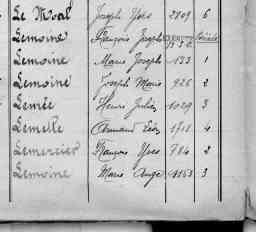 Le Moal Joseph Yves 2109 6
Lemoine François Joseph
Lemoine Marie Joseph 133 1
Lemoine Joseph Marie 926 2
Lemée Henri Julien 1029 3
Lemelle Armand Léon 1711 4
Lemercier François Yves 784 2
Lemoine Marie Ange 1153 3